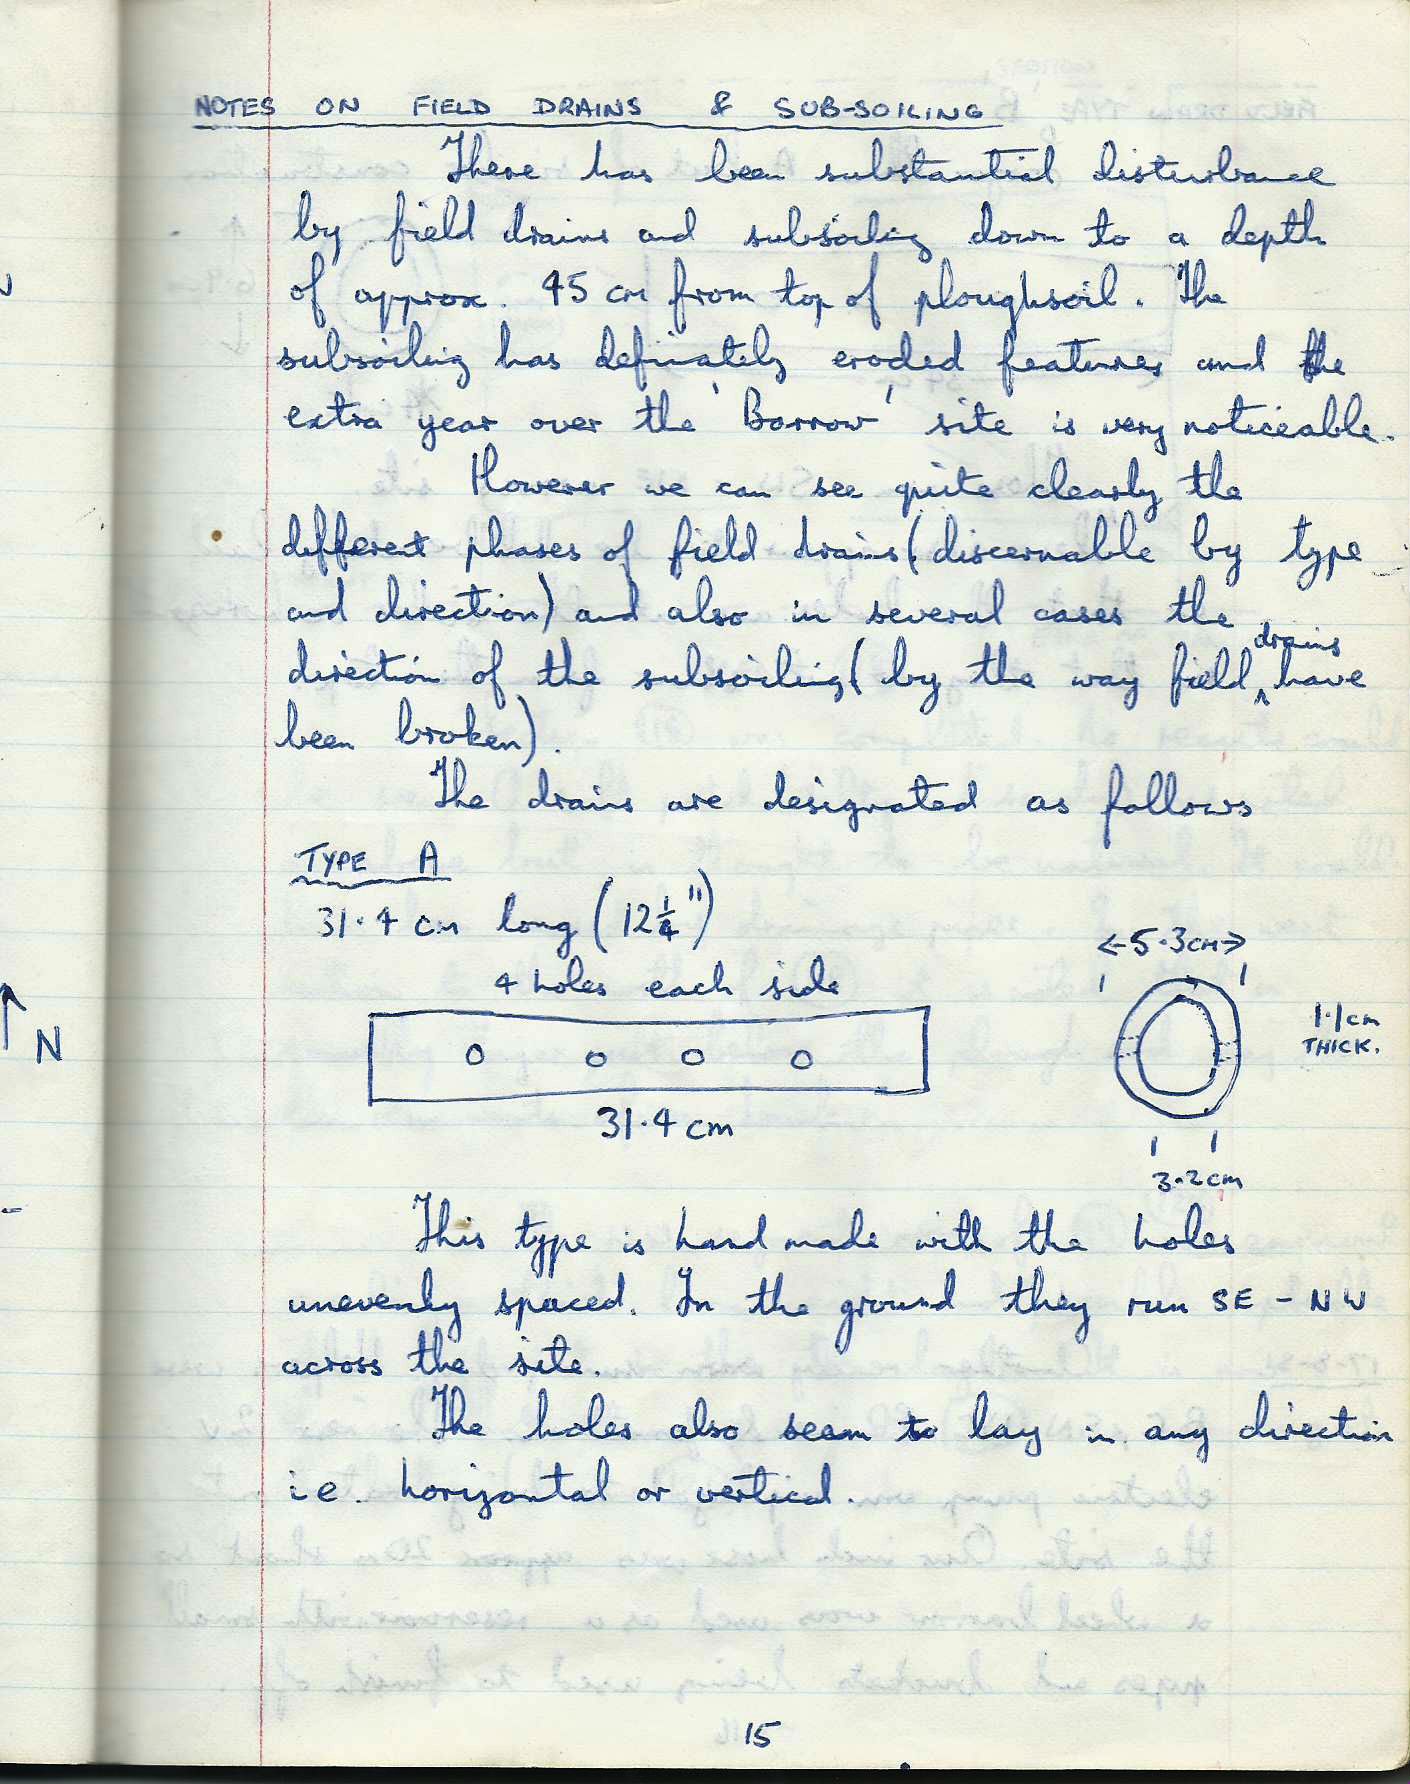 NOTES ON FIELD DRAINS & SUB-SOILING
There has been substantial disturbance
by field drains and subsoiling down to a depth
of approx. 45 cm from top of ploughsoil. The
subsoiling has definately eroded features and the
extra year over the 'Barrow' site is very noticeable.
However we can see quite clearly the
different phases of field drains (discernable by type
and direction) and also in several cases the
direction of the subsoiling (by the way field drains have
been broken).
The drains are designated as follows
TYPE A
31.4 cm long (12 1/4")
4 holes each side
31.4 cm
<-5.3cm->
1.1cm
THICK.
3.2cm
N
This type is hand made with the holes
unevenly spaced. In the ground they run SE - NW
across the site.
The holes also seem to lay in any direction
i.e. horizontal or vertical.
15